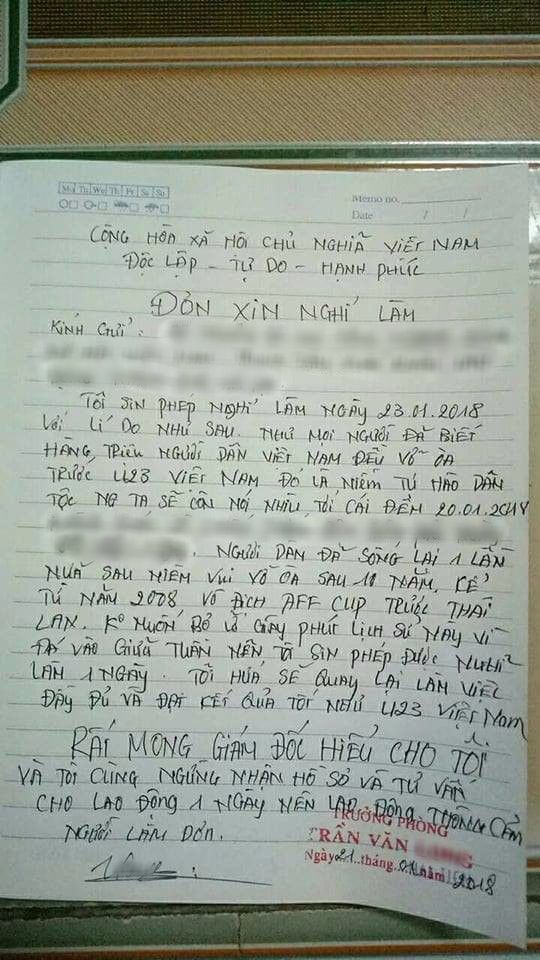 Mo Tu We Th Fr Sa Su
Memo no.
Date / /
CỘNG HÒA XÃ HỘI CHỦ NGHĨA VIỆT NAM
ĐỘC LẬP - TỰ DO - HẠNH PHÚC
ĐƠN XIN NGHỈ LÀM
KÍNH GỬI:
TÔI SIN PHÉP NGHỈ LÀM NGÀY 23.01.2018
VỚI LÍ DO NHƯ SAU. NHƯ MỌI NGƯỜI ĐÃ BIẾT
HÀNG TRIỆU NGƯỜI DÂN VIỆT NAM ĐỀU VỠ ÒA
TRƯỚC U23 VIỆT NAM ĐÓ LÀ NIỀM TỰ HÀO DÂN
TỘC NG TA SẼ CÒN NÓI NHIỀU TỚI CÁI ĐÊM 20.01.2018
NGƯỜI DÂN ĐÃ SỐNG LẠI 1 LẦN
NỮA SAU NIỀM VUI VỠ ÒA SAU 10 NĂM. KỂ
TỪ NĂM 2008 VÔ ĐỊCH AFF CUP TRƯỚC THÁI
LAN. Ko MUỐN BỎ LỠ GIÂY PHÚT LỊCH SỬ NÀY VÌ
ĐÁ VÀO GIỮA TUẦN NÊN TÔI SIN PHÉP ĐƯỢC NGHỈ
LÀM 1 NGÀY. TÔI HỨA SẼ QUAY LẠI LÀM VIỆC
ĐẦY ĐỦ VÀ ĐẠT KẾT QUẢ TỐT NHƯ U23 VIỆT NAM
RẤT MONG GIÁM ĐỐC HIỂU CHO TÔI
VÀ TÔI CŨNG NGỪNG NHẬN HỒ SƠ VÀ TƯ VẤN
CHO LAO ĐỘNG 1 NGÀY NÊN LAO ĐỘNG THÔNG CẢM
NGƯỜI LÀM ĐƠN.
TRƯỞNG PHÒNG
TRẦN VĂN
Ngày 21 tháng 01 năm 2018